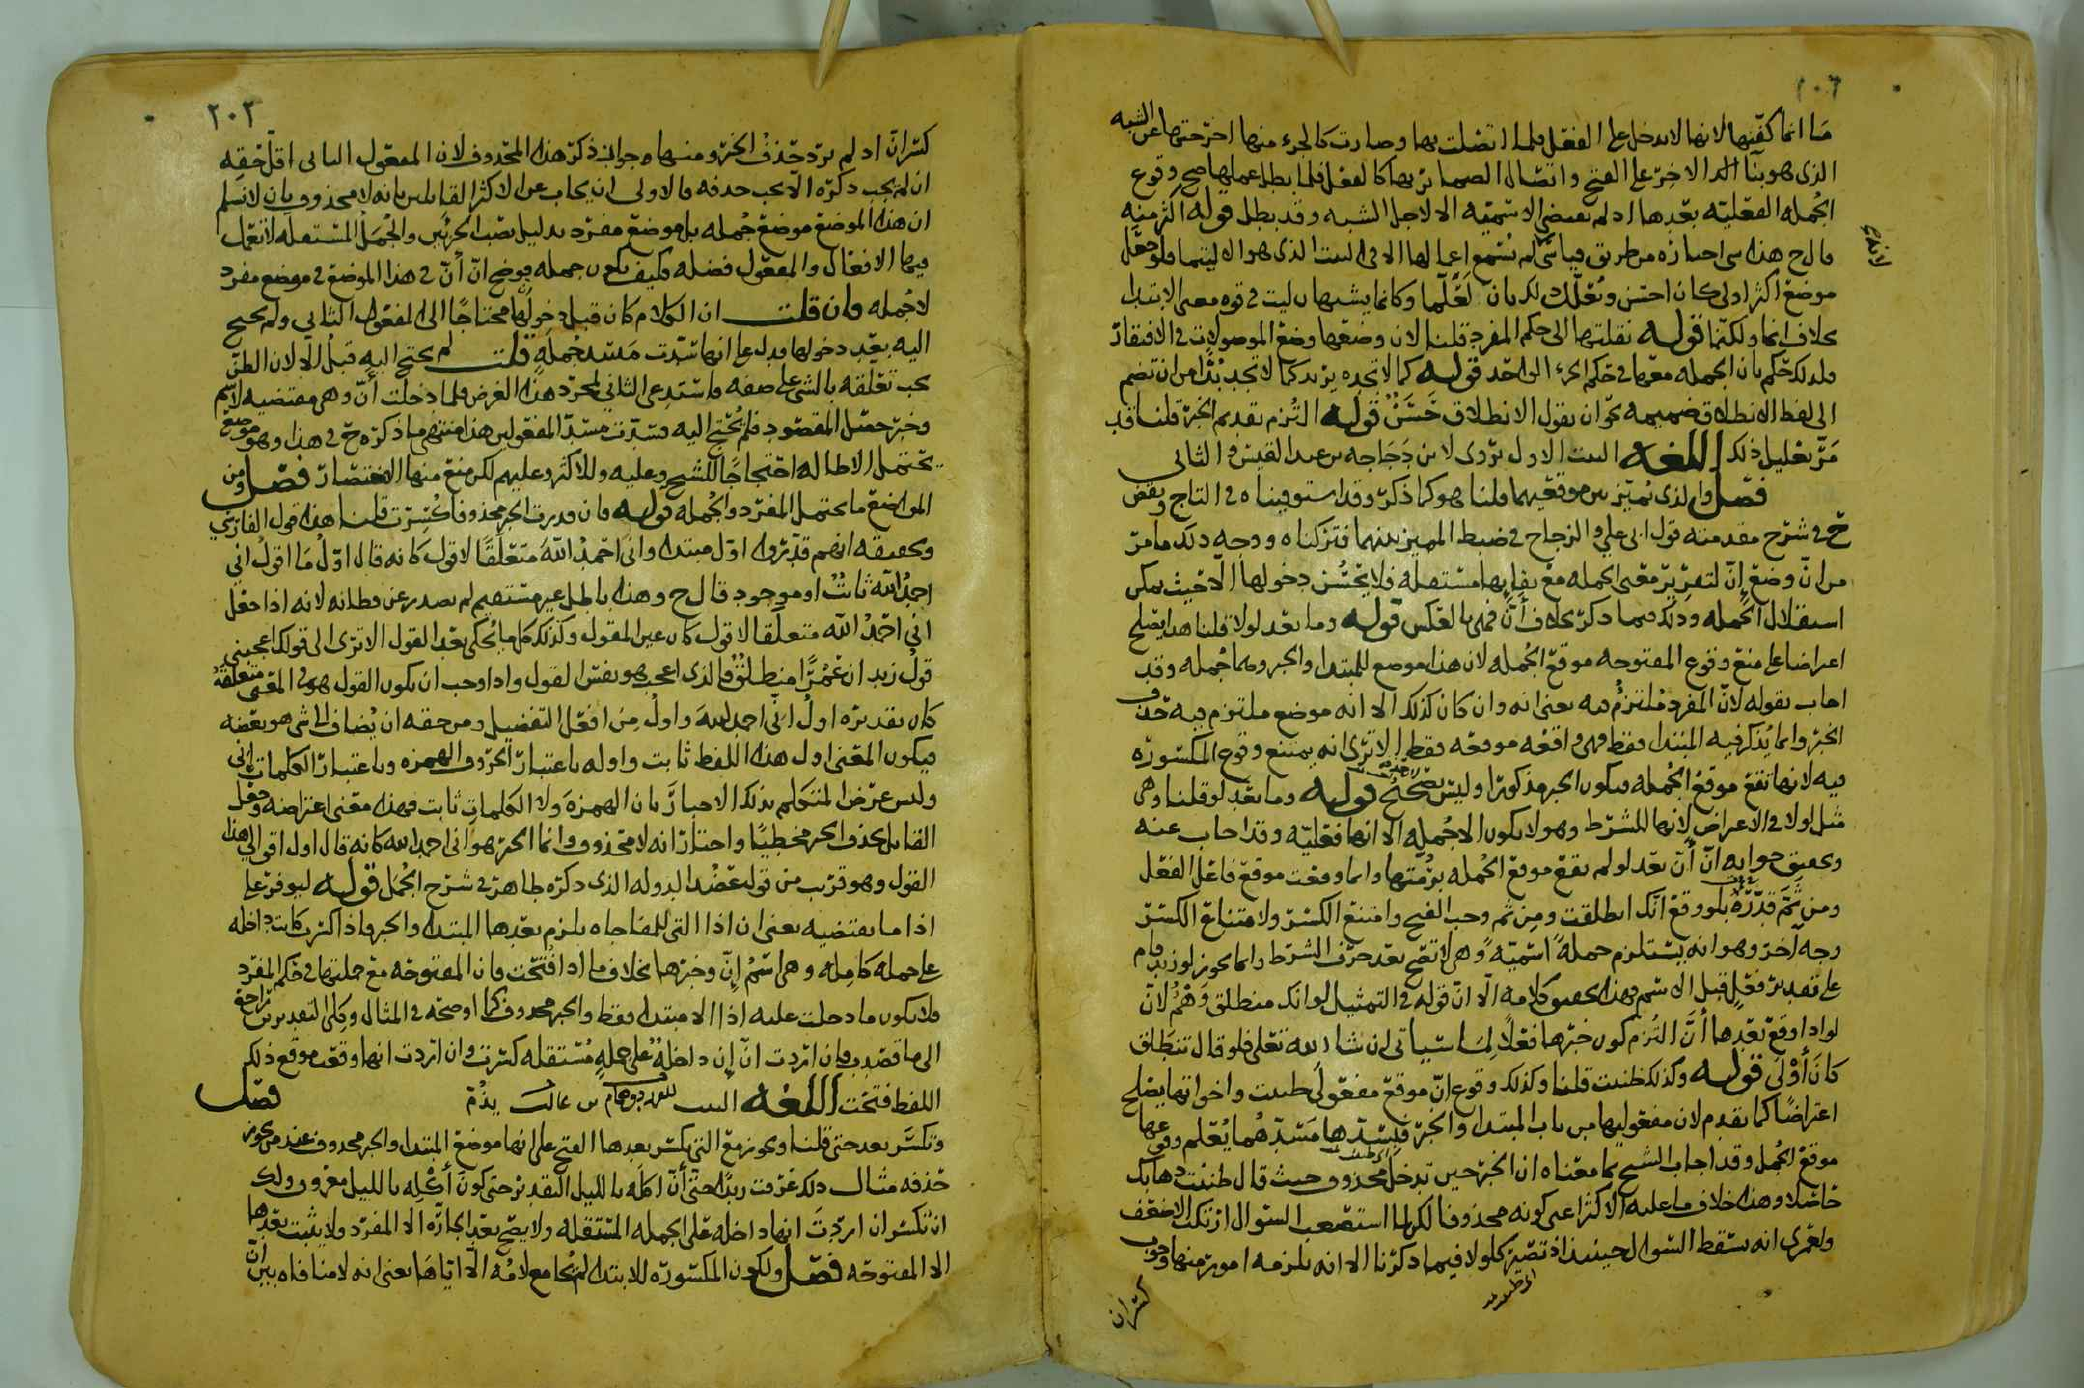 ما انما كفتها لانها لا تدخل على الفعل فلما اتصلت بها وصارت كالجزء منها اخرجتها عن الشبه
الذي هو بناء الاخر على الفتح واتصال الضمائر بها كالفعل فلما بطل عملها صح وقوع
الجملة الفعلية بعدها اذ لم تقتضى الاسمية الا لاجل الشبه وقد بطل قوله اكثر منه
قال ح هذا شى اجازه من طريق قياسى لم يسمع اعمالها الا فى البيت الذى هو الا ليتما فلو جعل
موضع اكثر اولى كان احسن وتعلك لكن بان لعلما وكانما يشبهان ليت فى قوة معنى الابتدا
بخلاف انما ولكنما قوله نقلتها الى حكم المفرد قلنا لان وضعها وضع الموصولات فى الافتقار
ولذلك حكم بان الجملة معها فى حكم الجزء الواحد قوله كما لا تجده يريد كما لا تجد بدا من ان تضم
الى لفظ الانطلاق ضميمه نحو ان يقول الانطلاق حسن قوله التزم تقديم الخبر قلنا قد
مر تعليل ذلك اللغه البيت الاول يروى لابن دجاجه من عبد القيس والثانى
فصل والذى يميز بين موقعيهما قلنا هو كما ذكر وقد استوفيناه فى التاج ونقض
ح فى شرح مقدمته قول ابى على والزجاج فى ضبط المميز بينهما فتركناه ووجه ذلك ما مر
من ان وضع ان لتقرير معنى الجملة مع بقايها مستقلة فلا يحسن دخولها الا حيث يمكن
استقلال الجمله وذلك فيما ذكر بخلاف ان فهى بالعكس قوله وما بعد لولا قلنا هذا يصلح
اعتراضا على منع وقوع المفتوحه موقع الجمله لان هذا موضع للمبتدا والخبر وهما جمله وقد
اجاب بقوله لان المفرد ملتزم فيه يعنى انه وان كان كذلك الا انه موضع ملتزم فيه حذف
الخبر وانما يذكر فيه المبتدا فقط فهى واقعه موقعه فقط الا ترى انه يمتنع وقوع المكسورة
فيه لانها تقع موقع الجمله فيكون الخبر مذكورا وليس بصحيح قوله وما بعد لو قلنا وهى
مثل لولا فى الاعتراض لانها للشرط وهو لا يكون الا جمله الا انها فعلية وقد اجاب عنه
وتحقيق جوابه ان أن بعد لو لم تقع موقع الجمله برمتها وانما وقعت موقع فاعل الفعل
ومن ثم قدره بلو وقع انك انطلقت ومن ثم وجب الفتح وامتنع الكسر ولامتناع الكسر
وجه آخر وهو انه يستلزم جملة اسمية وهى لا تصح بعد حرف الشرط وانما يجوز لو زيد قام
على تقدير فعل قبل الاسم فهذا تحقيق كلامه الا ان قوله فى التمثيل لو انك منطلق وهم لان
لو اذا وقع بعدها أن التزم كون خبرها فعلا لما سياتى ان شاء الله تعالى فلو قال تنطلق
كان أولى قوله وكذلك ظننت قلنا وكذلك وقوع ان موقع مفعولى ظننت واخواتها يصلح
اعتراضا كما تقدم لان مفعوليها من باب المبتدا والخبر فبسدها مسدهما يعلم وقوعها
موقع الجمل وقد اجاب الشيخ بما معناه ان الخبر حين تدخل محذوف حيث قال ظننت ذهابك
حاصلا وهذا خلاف ما عليه الاكثر اعنى كونه محذوفا لكن لما استصعب السوال ارتكب الاضعف
ولعمرى انه سقط السوال حينئذ اذ تصير كلولا فيما ذكرنا الا انه يلزمه امور منها وجوب
كسر ان
٢٠٢
كسر ان اذ لم يرد حذف الخبر ومنها وجواز ذكر هذا المحذوف لان المفعول الثانى اقل حقه
ان لم يجب ذكره الا يجب حذفه فالاولى ان يجاب عن الاكثر القايلين بانه لا محذوف بان لا نسلم
ان هذا الموضع موضع جمله بل موضع مفرد بدليل نصب الجزئين والجمل المستقله لا تعمل
فيها الافعال والمفعول فضله فكيف يكون جمله فوضح ان أن فى هذا الموضع فى موضع مفرد
لا جمله فان قلت ان الكلام كان قبل دخولها محتاجا الى المفعول الثانى ولم يحتج
اليه بعد دخولها فدل على انها سدت مسد جمله قلت لم يحتج اليه قبل الا لان الظن
يجب تعلقه بالشى على صفه فاستدعى الثانى لمجرد هذا الغرض فلما دخلت أن وهى مقتضيه لاسم
وخبر حصل المقصود فلم يحتج اليه فسدت مسد المفعولين هذا منتهى ما ذكره ح فى هذا وهو موضع
يحتمل الاطاله احتجاجا للشيخ وعليه وللاكثر وعليهم لكن منع منها الاختصار فصل ومن
المواضع ما يحتمل المفرد والجمله قوله فان قدرت الخبر محذوفا كسرت قلنا هذا قول الفارسى
وتحقيقه انهم قدروا اول مبتدا وانى احمد الله متعلقا لاقول كانه قال اول ما اقول انى
احمد الله ثابت او موجود قال ح وهذا باطل غير مستقيم لم يصدر عن فطانه لانه اذا جعل
انى احمد الله متعلقا لاقول كان عين المقول وكذلك كلما يحكى بعد القول الا ترى الى قولك اعجبنى
قول زيد ان عمرا منطلق فالذى اعجب هو نفس القول واذا وجب ان يكون القول هو فى المعنى متعلقه
كان تقديره اول انى احمد الله واول من افعل التفضيل ومن حقه ان يضاف الى شى هو بعضه
فيكون المعنى اول هذا اللفظ ثابت واوله باعتبار الحروف الهمزه وباعتبار الكلمات انى
وليس غرض المتكلم بذلك الاخبار بان الهمزة ولا الكلمات ثابت فهذا معنى اعتراضه وجعل
القايل بحذف الخبر مخطيا واختار انه لا محذوف وانما الخبر هو انى احمد الله كانه قال اول اقوالى هذا
القول وهو قريب من قول عضد الدوله الذى ذكره طاهر فى شرح الجمل قوله ليوفر على
اذا ما يقتضيه يعنى ان اذا التى للمفاجاه يلزم بعدها المبتدا والخبر فاذا كسرت كانت داخله
على جمله كامله وهى اسم إن وخبرها بخلاف ما اذا فتحت فان المفتوحه مع جملتها فى حكم المفرد
فلا يكون ما دخلت عليه اذا الا مبتدا فقط والخبر محذوف كما اوضحه فى المثال وكلى التقديرين راجع
الى ما قصدت فان اردت ان إن داخله على جملة مستقله كسرت وان اردت انها وقعت موقع ذلك
اللفظ فتحت اللغه البيت بن غالب يذم فصل
وتكسر بعد حتى قلنا ويجوز مع التى يكسر بعدها الفتح على انها موضع المبتدا والخبر محذوف عند من يجوز
حذفه مثال ذلك عرفت زيدا حتى أن اكله بالليل التقدير حتى كون أكله بالليل معروف ولك
ان تكسر ان اردت انها داخله على الجمله المستقله ولا يصح بعد الجارة الا المفرد ولا يثبت بعدها
الا المفتوحه فصل ولكون المكسوره للابتدا لم تجامع لامه الا اياها يعنى انه لا منافاه بين ان